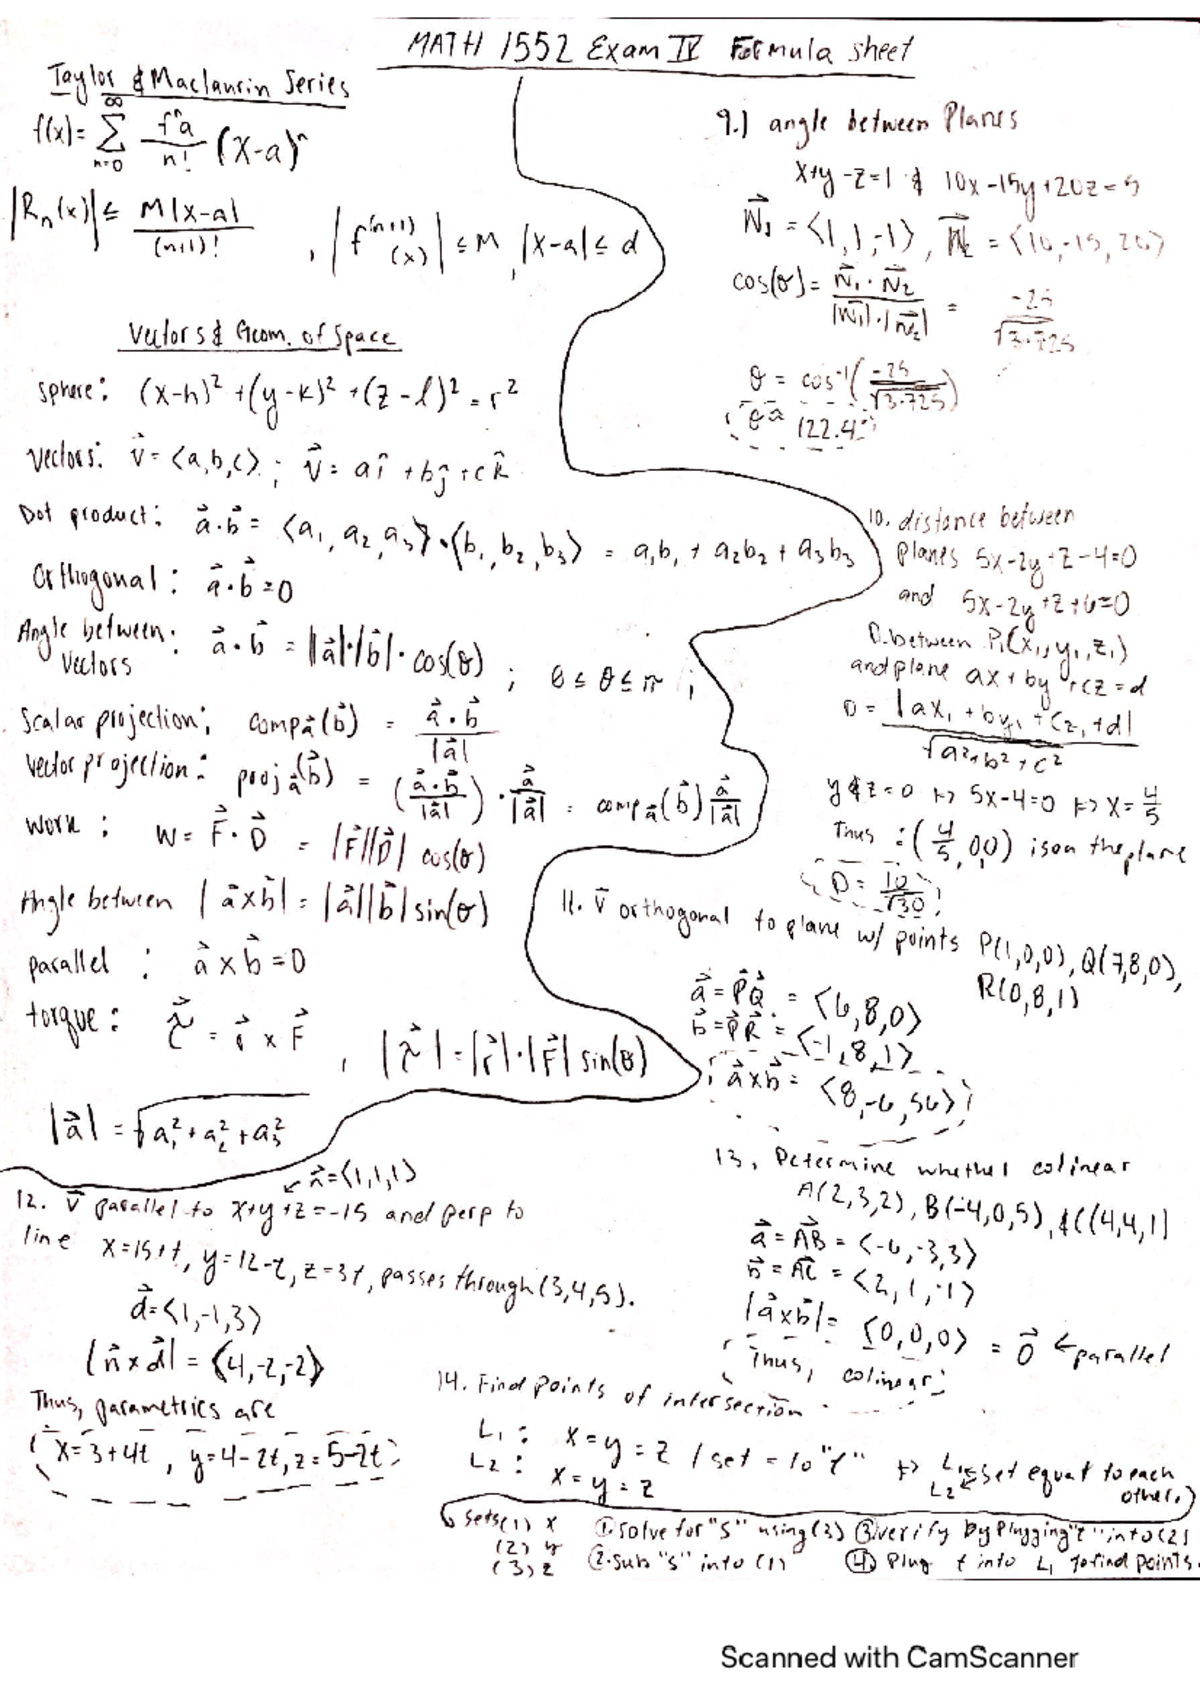 MATH 1552 Exam IV Formula sheet
Taylor & Maclaurin Series
f(x)= ∞ Σ n=0 fⁿa / n! (x-a)ⁿ
|Rn(x)| ≤ M|x-a| / (n+1)! , |f^(n+1)(x)| ≤ M, |x-a| ≤ d
Vectors & Geom. of Space
sphere: (x-h)² + (y-k)² + (z-l)² = r²
Vectors: v⃗ = <a,b,c> ; v⃗ = aî + bĵ + ck̂
Dot product: a⃗·b⃗ = <a₁, a₂, a₃>·<b₁, b₂, b₃> = a₁b₁ + a₂b₂ + a₃b₃
Orthogonal: a⃗·b⃗=0
Angle between: a⃗·b⃗ = |a⃗|·|b⃗|·cos(θ) ; 0 ≤ θ ≤ π ;
Vectors
Scalar projection: comp a⃗(b⃗) = a⃗·b⃗ / |a⃗|
Vector projection: proj a⃗(b⃗) = (a⃗·b⃗ / |a⃗|) · a⃗/|a⃗| = comp a⃗(b⃗) a⃗/|a⃗|
Work: W = F⃗·D⃗ = |F⃗||D⃗| cos(θ)
Angle between |a⃗xb⃗| = |a⃗||b⃗| sin(θ)
parallel : a⃗ x b⃗ = 0
torque: τ⃗ = r⃗ x F⃗ , |τ⃗| = |r⃗|·|F⃗| sin(θ)
|a⃗| = √a₁² + a₂² + a₃²
9.) angle between Planes
x+y-z=1 & 10x-15y+20z=5
N⃗₁ = <1,1,-1>, N⃗₂ = <10,-15,20>
cos(θ) = N⃗₁·N⃗₂ / |N⃗₁|·|N⃗₂| = -25 / √3·725
θ = cos⁻¹(-25 / √3·725)
θ ≈ 122.4°
10. distance between
planes 5x-2y+z-4=0
and 5x-2y+z+6=0
D. between P₁(x₁,y₁,z₁)
and plane ax+by+cz=d
D = |ax₁+by₁+cz₁+d| / √a²+b²+c²
y & z = 0 ↦ 5x-4=0 ↦ x= 4/5
Thus : (4/5,0,0) is on the plane
D = 10/√30
11. v⃗ orthogonal to plane w/ points P(1,0,0), Q(7,8,0),
R(0,8,1)
a⃗ = P⃗Q⃗ = <6,8,0>
b⃗ = P⃗R⃗ = <-1,8,1>
a⃗xb⃗ = <8,-6,56>
n⃗=<1,1,1>
12. v⃗ parallel to x+y+z=-15 and perp to
line x=15+t, y=12-t, z=3t, passes through (3,4,5).
d⃗=<1,-1,3>
|n⃗xd⃗| = <4,-2,-2>
Thus, parametrics are
x=3+4t, y=4-2t, z=5-2t
13. Determine whether colinear
A(2,3,2), B(-4,0,5), & C(4,4,1)
a⃗ = A⃗B⃗ = <-6,-3,3>
b⃗ = A⃗C⃗ = <2,1,-1>
|a⃗xb⃗| = <0,0,0> = 0⃗ ← parallel
Thus, colinear
14. Find points of intersection
L₁: x=y=z / set = to "t" ↦ L₁ set equal to each
L₂: x=y=z L₂ other.
sets (1) x ①. solve for "s" using (3) ③ verify by plugging "t" into (2)
(2) y ②. sub "s" into (1) ④ plug t into L₁ to find points.
(3) z
Scanned with CamScanner